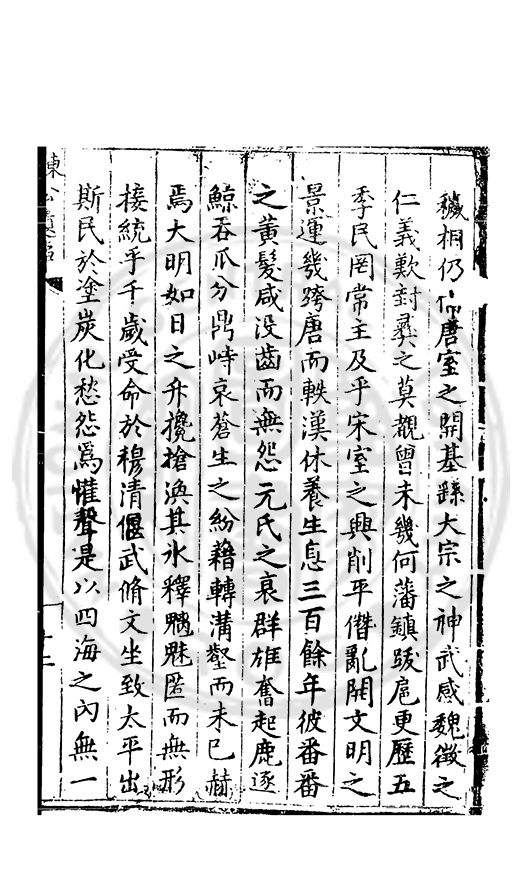 穢相仍唐室之開基繇太宗之神武感魏徵之
仁義歎封彛之莫覩曾未幾何藩鎮跋扈更歷五
季民罔常主及乎宋室之興削平僭亂開文明之
景運幾跨唐而軼漢休養生息三百餘年彼番番
之黃髮咸没齒而無怨元氏之衰群雄奮起鹿逐
鯨吞瓜分鼎峙哀蒼生之紛藉轉溝壑而未已赫
焉大明如日之升攙搶渙其氷釋魑魅匿而無形
接統乎千歲受命於穆清偃武脩文坐致太平出
斯民於塗炭化愁怨爲懽聲是以四海之內無一